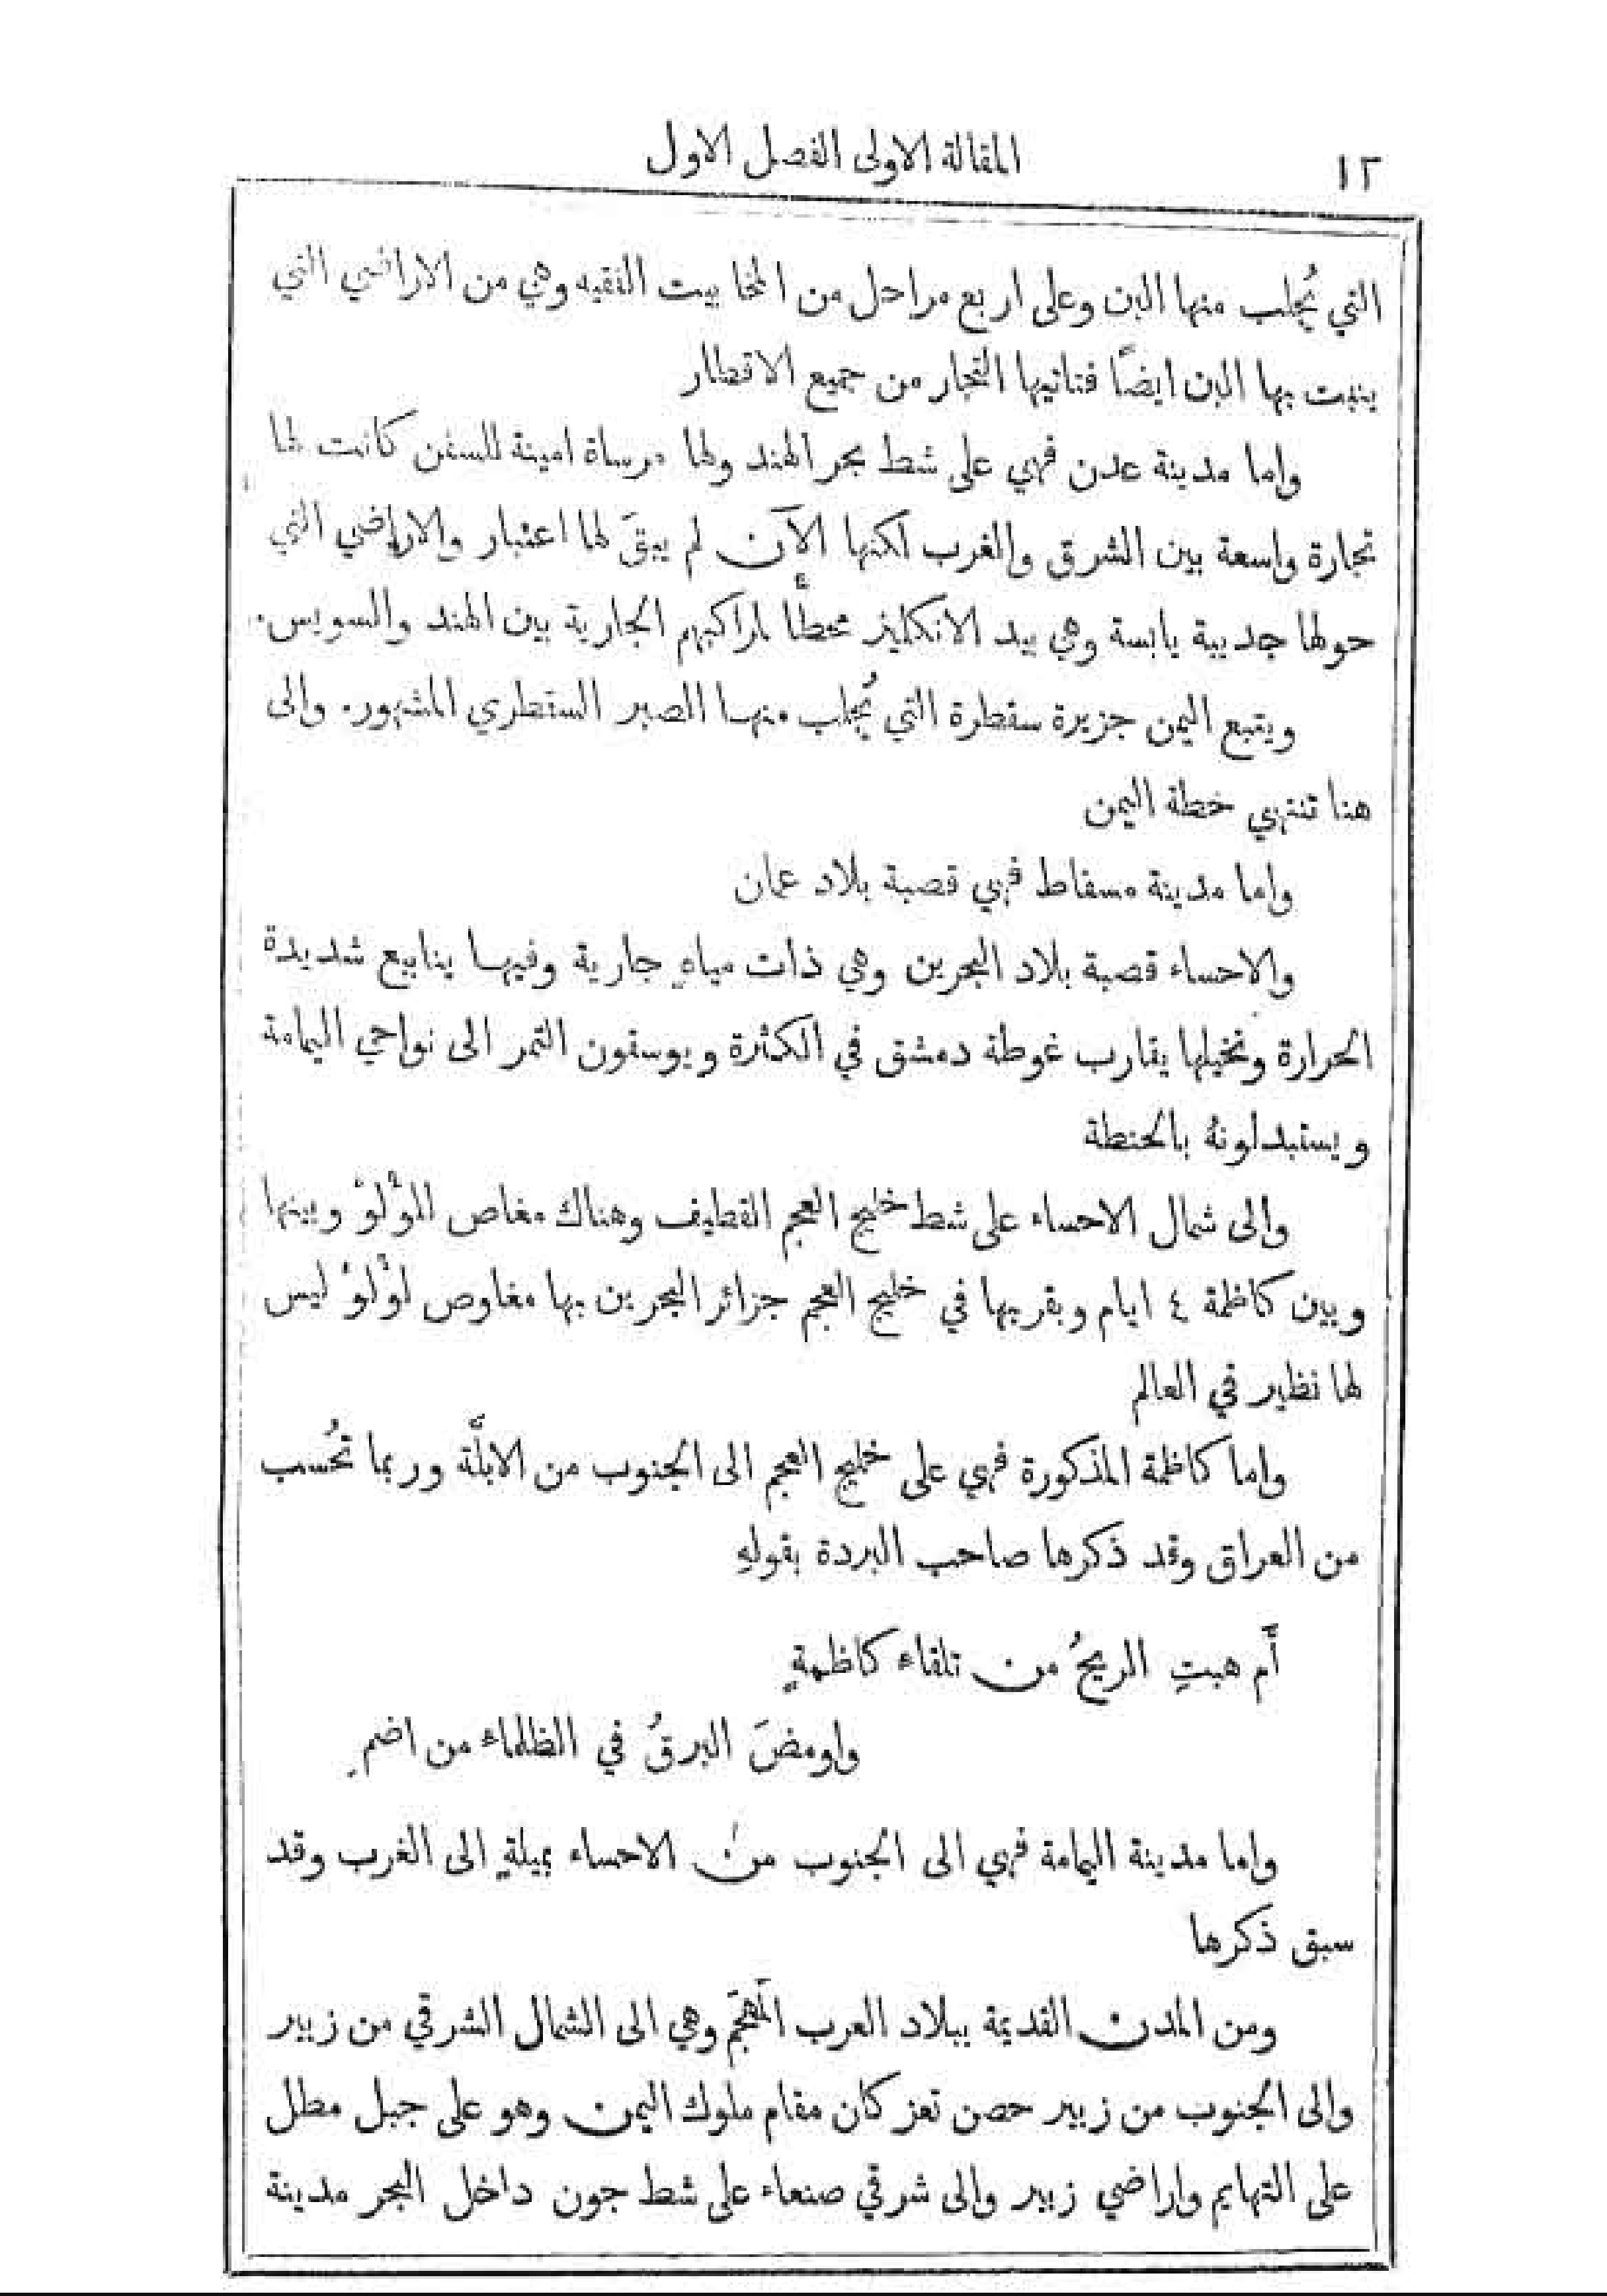 ١٢
المقالة الاولى الفصل الاول
التي يُجلب منها البن وعلى اربع مراحل من المخا بيت الفقيه وهي من الاراضي التي
ينبت بها البن ايضًا فتاتيها التجار من جميع الاقطار
واما مدينة عدن فهي على شط بحر الهند ولها مرساة امينة للسفن كانت لها
تجارة واسعة بين الشرق والغرب لكنها الآن لم يبقَ لها اعتبار والاراضي التي
حولها جديبة يابسة وهي بيد الانكليز محطًّا لمراكبهم الجارية بين الهند والسويس.
ويتبع اليمن جزيرة سقطرة التي يُجلب منها الصبر السقطري المشهور. والى
هنا تنتهي خطة اليمن
واما مدينة مسقاط فهي قصبة بلاد عمان
والاحساء قصبة بلاد البحرين وهي ذات مياهٍ جارية وفيها ينابيع شديدة
الحرارة ونخيلها يقارب غوطة دمشق في الكثرة ويوسقون التمر الى نواحي اليمامة
ويستبدلونهُ بالحنطة
والى شمال الاحساء على شط خليج العجم القطيف وهناك مغاص للؤْلوْ وبينها
وبين كاظمة ٤ ايام وبقربها في خليج العجم جزائر البحرين بها مغاوص لوْلوْ ليس
لها نظير في العالم
واما كاظمة المذكورة فهي على خليج العجم الى الجنوب من الابلَّة وربما تُحسب
من العراق وقد ذكرها صاحب البردة بقولهِ
أَم هبتِ الريحُ من تلقاء كاظمةٍ
واومضَ البرقُ في الظلماء من اضمِ
واما مدينة اليمامة فهي الى الجنوب من الاحساء بميلةٍ الى الغرب وقد
سبق ذكرها
ومن المدن القديمة ببلاد العرب المَهجَم وهي الى الشمال الشرقي من زبيد
والى الجنوب من زبيد حصن تعز كان مقام ملوك اليمن وهو على جبل مطل
على التهايم واراضي زبيد والى شرقي صنعاء على شط جون داخل البحر مدينة